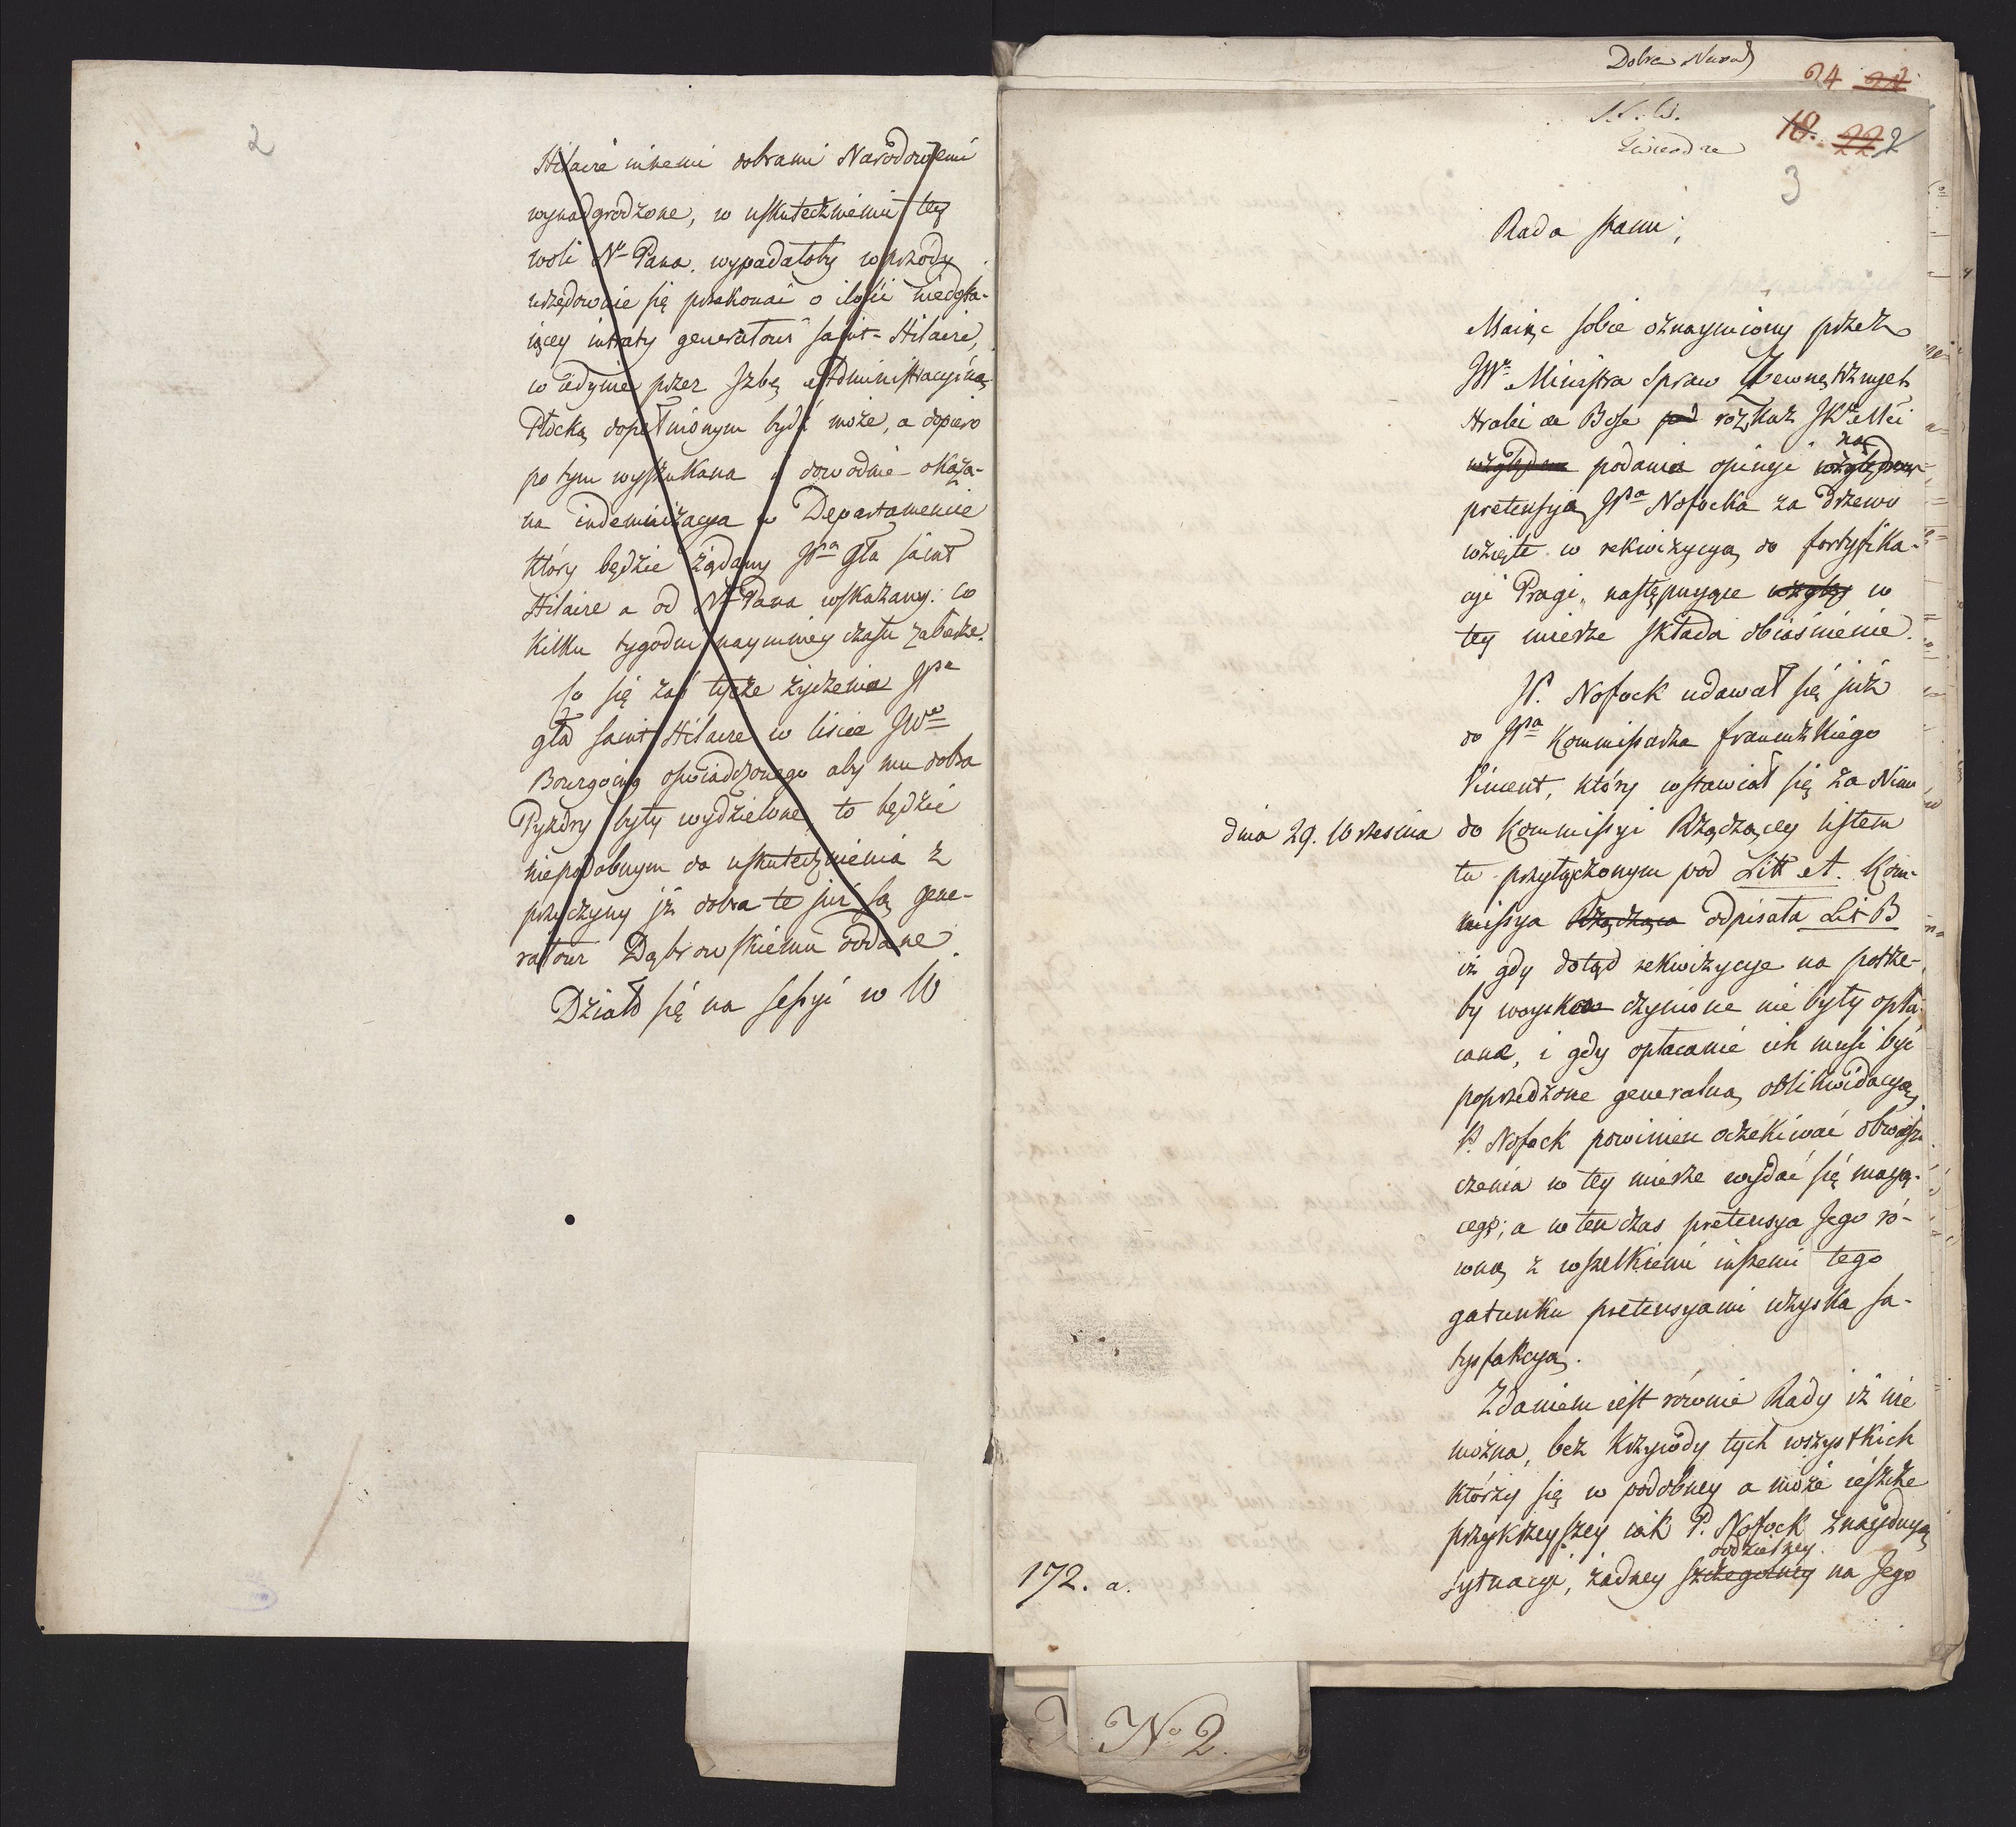 2
Hilaire innemi dobrami Narodowemi
wynadgrodzone, w uskutecznieniu tey
woli N° Pana. wypadałoby wprzódy
urzędownie się przekonać o ilości niedosta-
iącey intraty generałowi Saint-Hilaire,
co iedynie przez Izbę Administracyiną
Płocką dopełnionym bydź może, a dopiero
po tym wyszukana i dowodnie okaza-
na indemnizacya w Departamencie
który będzie żądany JPa Gła Saint
Hilaire a od N° Pana wskazany: co
kilku tygodni naymniey czasu zabierze.
Co się zaś tycze życzenia JPa
Gła Saint Hilaire w liście JWo
Bourgoing oświadczonego aby mu dobra
Pyzdry były wydzielone, to będzie
niepodobnym do uskutecznienia z
przyczyny iż dobra te już są gene-
rałowi Dąbrowskiemu oddane.
Działo się na sessyi w W
Dobra Narod
24 22
18. 22 2
3
Rada stanu,
Maiąc sobie oznaymiony przez
JWo Ministra Spraw Zewnętrznych
Hrabi de Bose pod rozkaz JKr Mci
względem podania opinyi względem na
pretensyą JPa Nofocka za drzewo
wzięte w rekwizycyą do fortyfika-
cyi Pragi, następuiące względ w
tey mierze składa obiaśnienie.
JP. Nofock udawał się już
do JPa Kommissarza francuzkiego
Vincent, który wstawiał się za Nim
dnia 29. Września do Kommissyi Rządzącey listem
tu przyłączonym pod Litt A. Kom-
missya Rządząca odpisała Lit B
iż gdy dotąd rekwizycye na potrze-
by woyska czynione nie były opła-
cane, i gdy opłacanie ich musi być
poprzedzone generalną oblikwidacyą,
P. Nofock powinien oczekiwać obwiesz-
czenia w tey mierze wydać się maią-
cego; a w ten czas pretensya Jego ró-
wną z wszelkiemi inszemi tego
gatunku pretensyami uzyska sa-
tysfakcyą.
Zdaniem iest równie Rady iż nie
można, bez krzywdy tych wszystkich
którzy się w podobney a może ieszcze
przykrzeyszey iak P. Nofock znayduyą
oddzielney
sytuacyi, żadney szczegolney na Jego
172. a.
No 2.